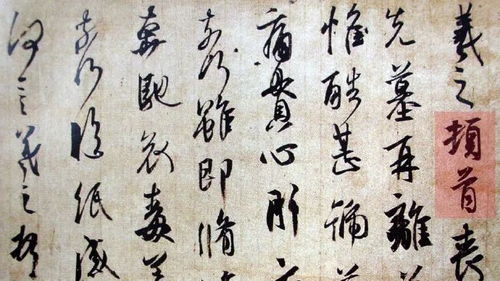 羲之頓首喪
先墓再離
惟酷甚號
痛貫心肝
奈何雖即脩
奔馳哀毒益
奈何臨紙感
何言羲之頓